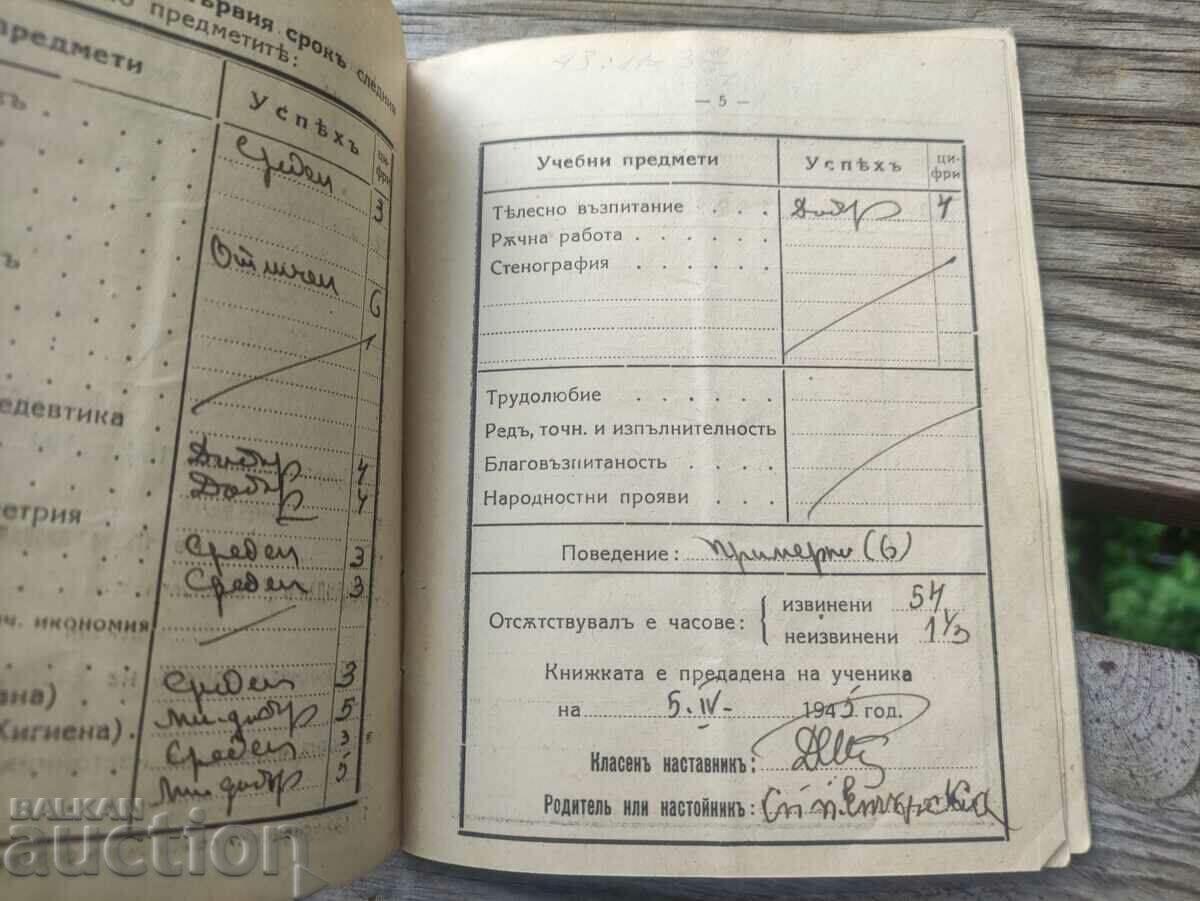 ървия срокъ следния
о предметитѣ:
предмети
Успѣхъ
ци
фри
Среден 3
Отличен 6
едевтика
Добър 4
Добър 4
етрия
Среден 3
Среден 3
ч. икономия
Среден 3
вна)
мн. добър 5
Хигиена) .
Среден 3
мн. добър 5
— 5 —
Учебни предмети
Успѣхъ
ци-
фри
Тѣлесно възпитание . . . Добър 4
Рѫчна работа . . . . .
Стенография . . . . . .
Трудолюбие . . . . .
Редъ, точн. и изпълнителность
Благовъзпитаность . . . .
Народностни прояви . . .
Поведение: примерно (6)
Отсѫтствувалъ е часове:
извинени 54
неизвинени 1 1/3
Книжката е предадена на ученика
на 5.IV- 1945 год.
Класенъ наставникъ:
Родитель или настойникъ:
БАЛКАН
auction